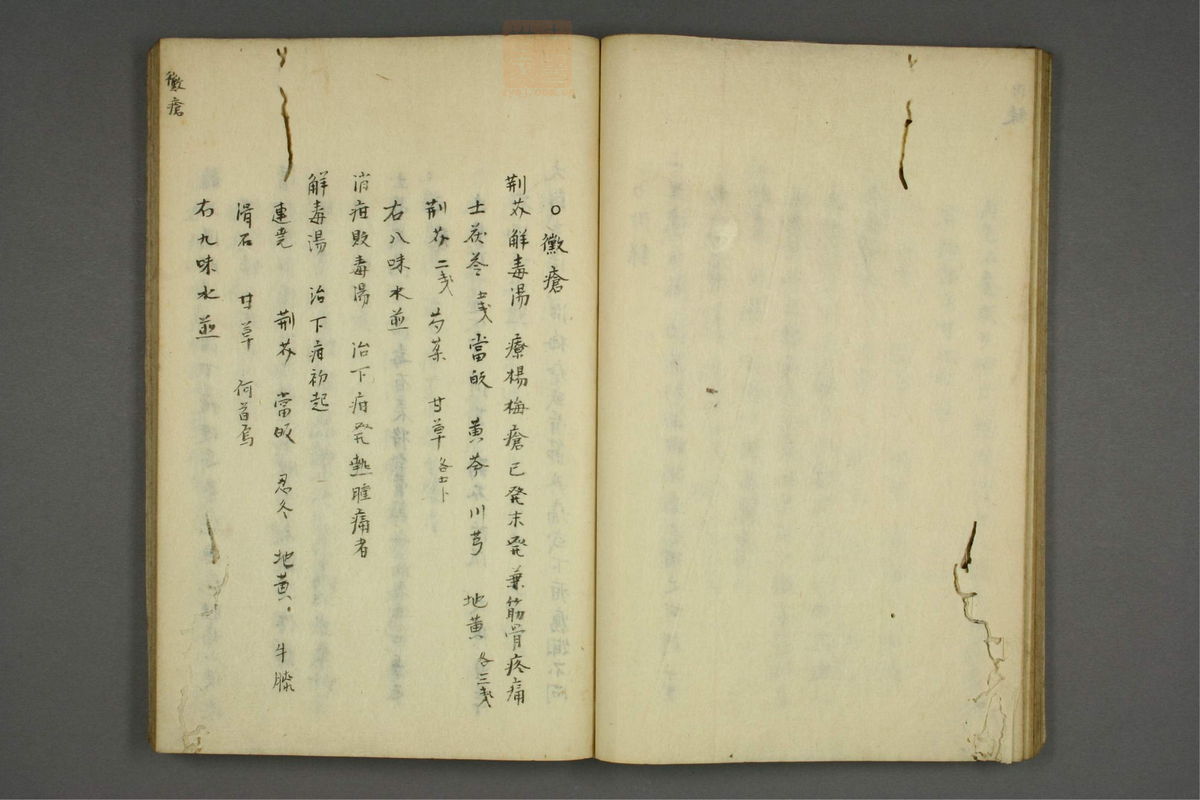 ○黴瘡
荆芥解毒湯 療楊梅瘡已発未発兼筋骨疼痛
土茯苓 當皈 黄芩 川芎 地黄 各三戔
荆芥二戔 芍薬 甘草
右八味水煎
消疳敗毒湯 治下疳発熱腫痛者
解毒湯 治下疳初起
連堯 荆芥 當皈 忍冬 地黄 牛膝
滑石 甘草 何首烏
右九味水煎
黴瘡